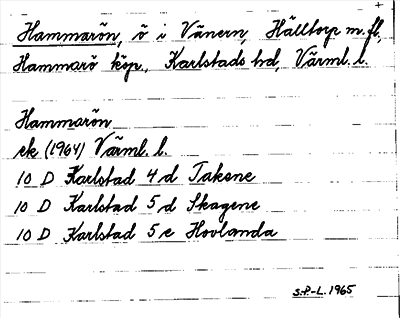 +
Hammarön, ö i Vänern, Hälltorp m.fl,
Hammarö köp., Karlstads hd, Värml. l.
Hammarön
ek (1964) Värml. l.
10 D Karlstad 4 d Takene
10 D Karlstad 5 d Skagene
10 D Karlstad 5 e Hovlanda
S.P.-L. 1965